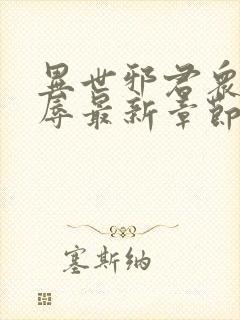 異世邪君衆
辱最新章節
塞斯納